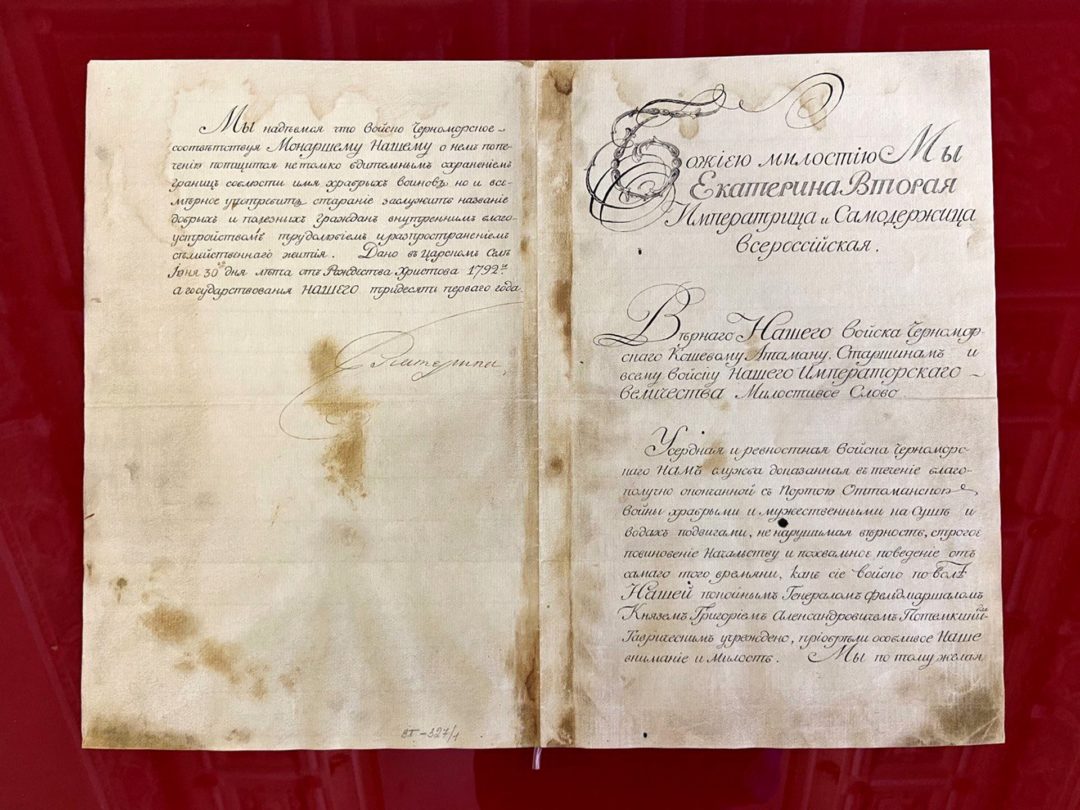 Мы надѣемся что войско Черноморское
соотвѣтствуя Монаршему Нашему о нем попе-
ченію потщится не только бдительным охраненіем
границ соблюсти имя храбрых воинов но и все-
мѣрное употребить стараніе заслужить название
добрых и полезных граждан внутренним благо-
устройством трудолюбіем и распространеніем
семейственнаго житія. Дано въ Царском Селѣ
Іюня 30 дня лѣта отъ Рождества Христова 1792го
а государствования НАШЕГО тридесять перваго года.
Екатерина
ВТ-327/1
Божіею милостію Мы
Екатерина Вторая
Императрица и Самодержица
Всероссійская.
Вѣрнаго Нашего войска Черномор-
скаго Кошевому Атаману, Старшинамъ и
всему войску Нашего Императорскаго
величества Милостивое Слово
Усердная и ревностная войска Черноморс-
каго НАМЪ служба доказанная въ теченіе благо-
получно оконченной съ Портою Оттоманскою
войны храбрыми и мужественными на Сушѣ и
водахъ подвигами, не нарушимая вѣрность, строгое
повиновеніе Начальству и похвальное поведеніе отъ
самаго того времяни, какъ сіе войско по волѣ
Нашей покойнымъ Генераломъ фельдмаршаломъ
Княземъ Григоріемъ Александровичемъ Потемкинымъ
Таврическимъ учреждено, пріобрѣли особливое Наше
вниманіе и милость. Мы по тому желая